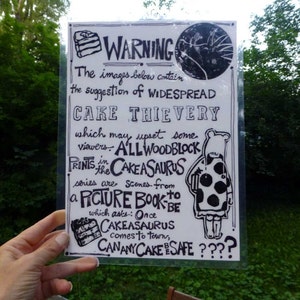 WARNING
The images below contain
the suggestion of WIDESPREAD
CAKE THIEVERY
which may upset some
viewers. ALL WOODBLOCK
PRINTS in the CAKEASAURUS
series are scenes from
a PICTURE BOOK-to-BE
which asks: Once
CAKEASAURUS
comes to town,
CAN ANY CAKE BE SAFE ????